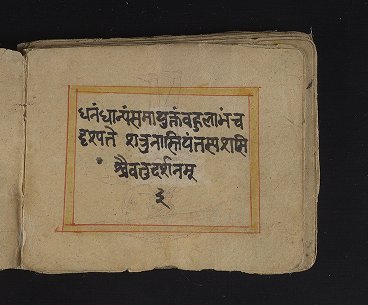 धनंधान्यंसमायुक्तंवहुलाभंच
दृश्यते शत्रुनास्तियंतस्य
श्चैवतुदर्शनम्
३